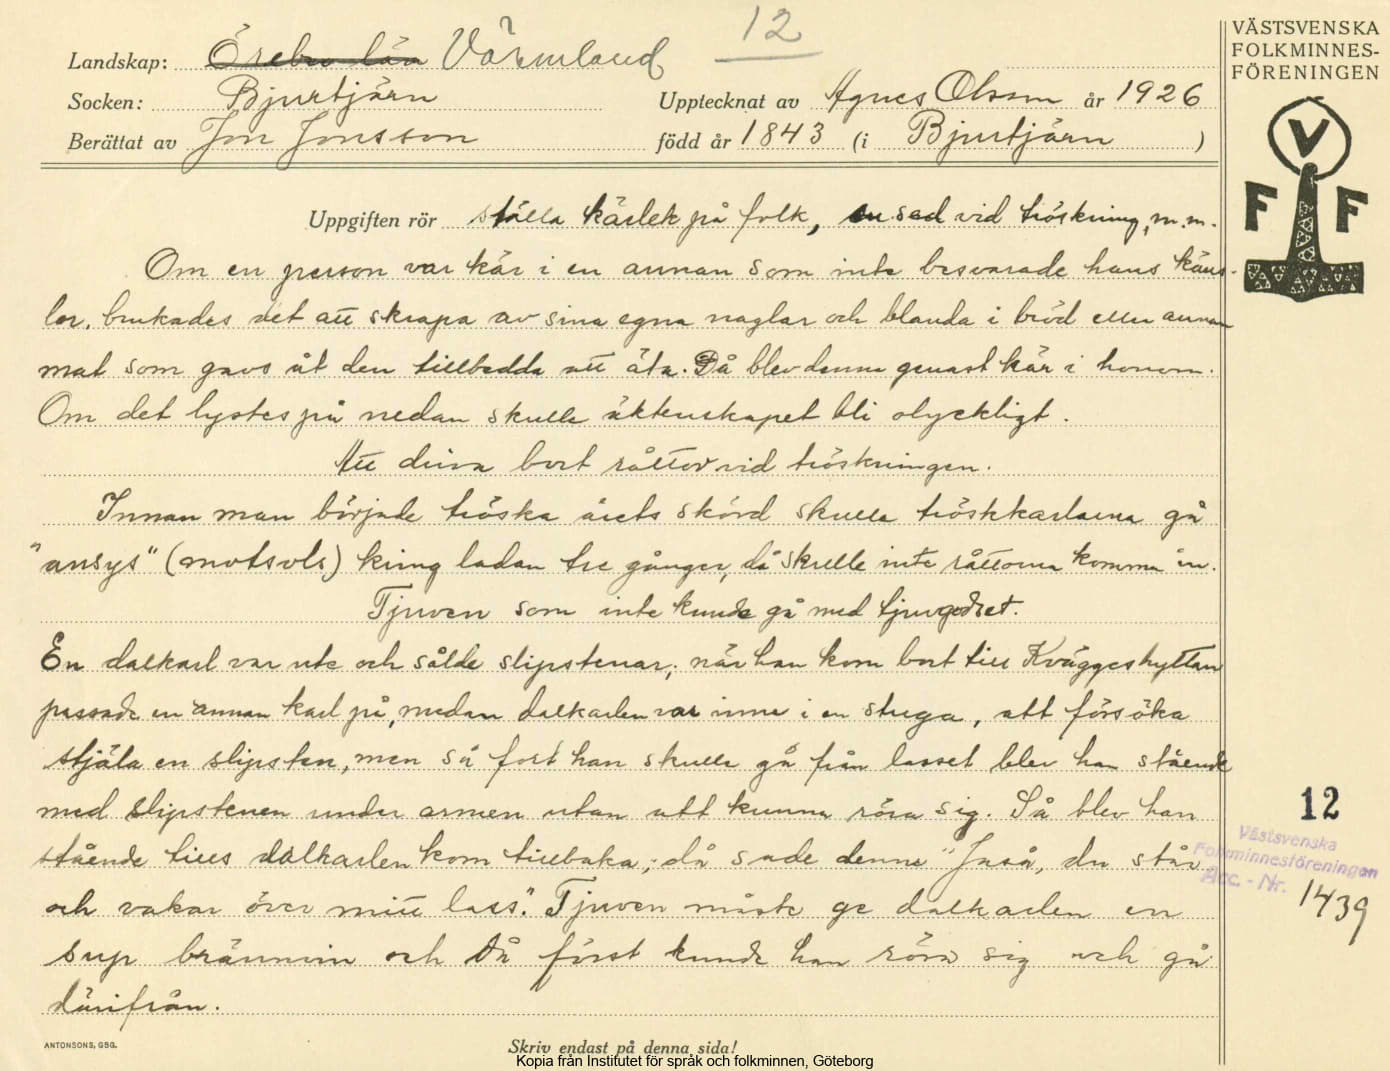 12
VÄSTSVENSKA
FOLKMINNES-
FÖRENINGEN
V
F F
Landskap: Örebro län Värmland
Socken: Bjurtjärn Upptecknat av Agnes Olsson år 1926
Berättat av Jon Jonsson född år 1843 (i Bjurtjärn )
Uppgiften rör ställa kärlek på folk, en sed vid tröskning, m.m.
Om en person var kär i en annan som inte besvarade hans käns-
lor, brukades det att skrapa av sina egna naglar och blanda i bröd eller annan
mat som gavs åt den tillbedda att äta. Då blev denna genast kär i honom.
Om det lystes på nedan skulle äktenskapet bli olyckligt.
Att driva bort råttor vid tröskningen.
Innan man började tröska årets skörd skulle tröskkarlarna gå
"ansys" (motsols) kring ladan tre gånger, då skulle inte råttorna komma in.
Tjuven som inte kunde gå med tjuvgodset.
En dalkarl var ute och sålde slipstenar; när han kom bort till Kväggeshyttan
passade en annan karl på, medan dalkarlen var inne i en stuga, att försöka
stjäla en slipsten, men så fort han skulle gå från lasset blev han stående
med slipstenen under armen utan att kunna röra sig. Så blev han
stående tills dalkarlen kom tillbaka; då sade denne "Jaså, du står
och vakar över mitt lass". Tjuven måste ge dalkarlen en
sup brännvin och då först kunde han röra sig och gå
därifrån.
12
Västsvenska
Folkminnesföreningen
Acc.-Nr. 1439
ANTONSONS, GBG.
Skriv endast på denna sida!
Kopia från Institutet för språk och folkminnen, Göteborg